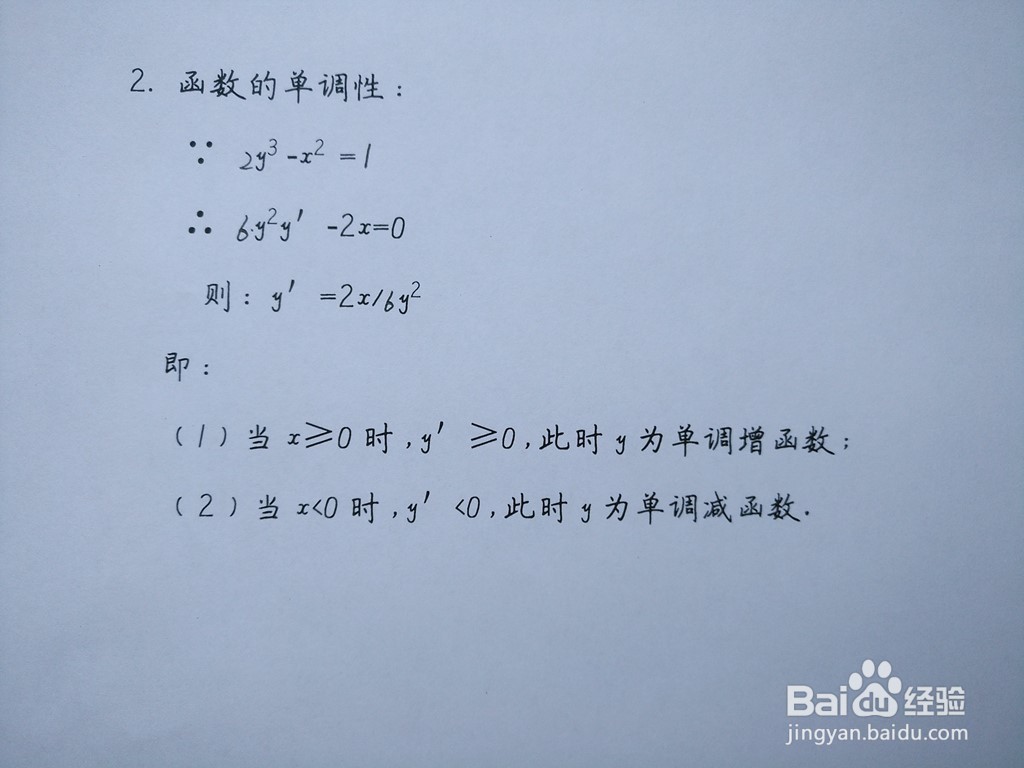 2. 函数的单调性：
∵ 2y³-x²=1
∴ 6y²y′-2x=0
则：y′=2x/6y²
即：
（1）当 x≥0 时，y′≥0，此时 y 为单调增函数；
（2）当 x<0 时，y′<0，此时 y 为单调减函数．
Baidu经验
jingyan.baidu.com